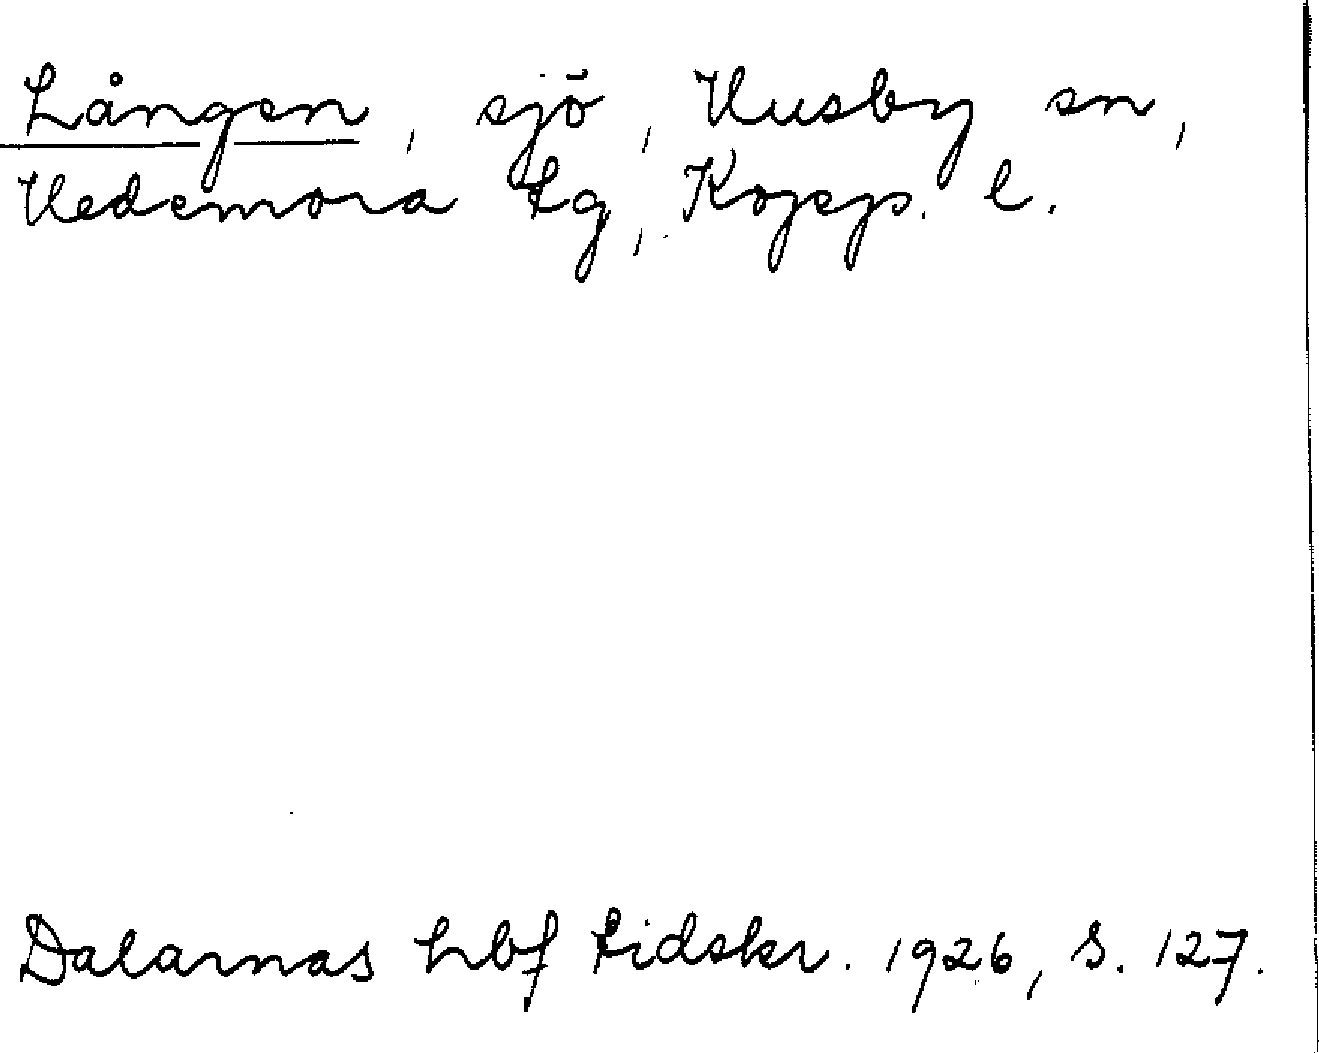 Lången, sjö, Husby sn,
Hedemora tg, Kopp. l.
Dalarnas hbf tidskr. 1926, s. 127.